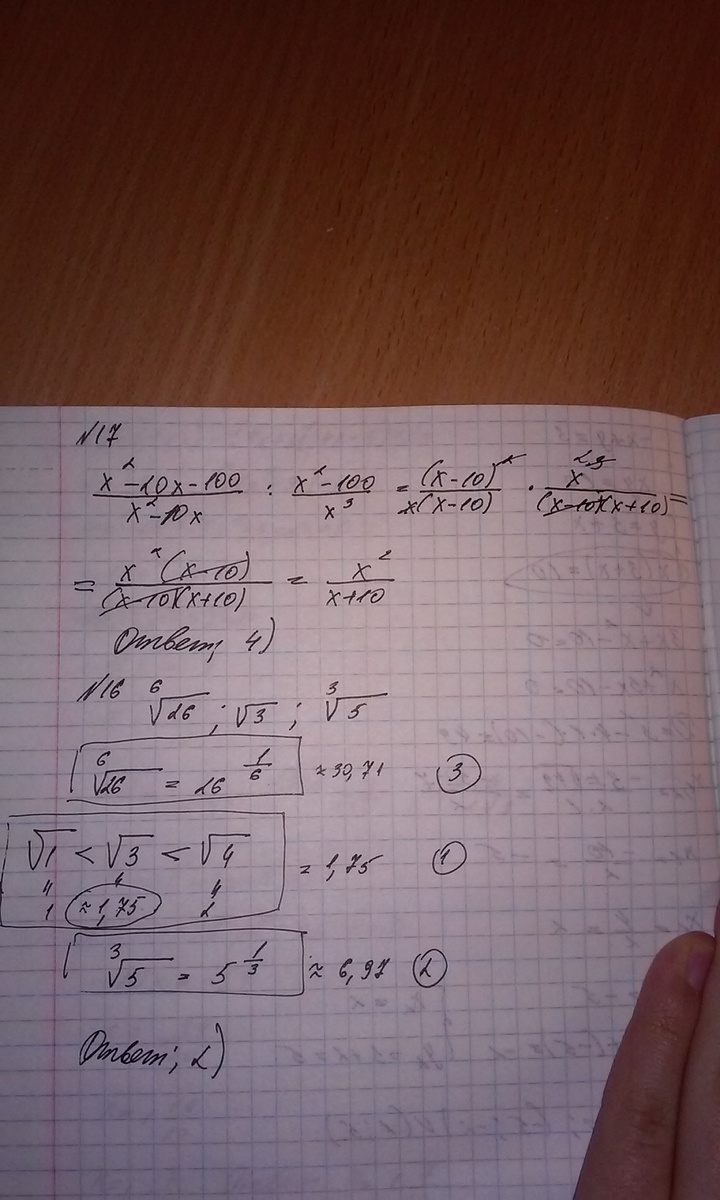 N17
x²-20x-100 / x²-10x : x²-100 / x³ = (x-10)² / x(x-10) · x³ / (x-10)(x+10) =
= x²(x-10) / (x-10)(x+10) = x² / x+10
Ответ; 4)
N16 ⁶√26 ; √3 ; ³√5
⁶√26 = 26^(1/6) ≈ 30,71 ③
√1 < √3 < √4 = 1,75 ①
1 ≈1,75 2
³√5 = 5^(1/3) ≈ 6,97 ②
Ответ; 2)